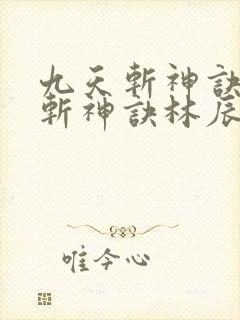 九天斬神訣
斬神訣林辰
唯今心